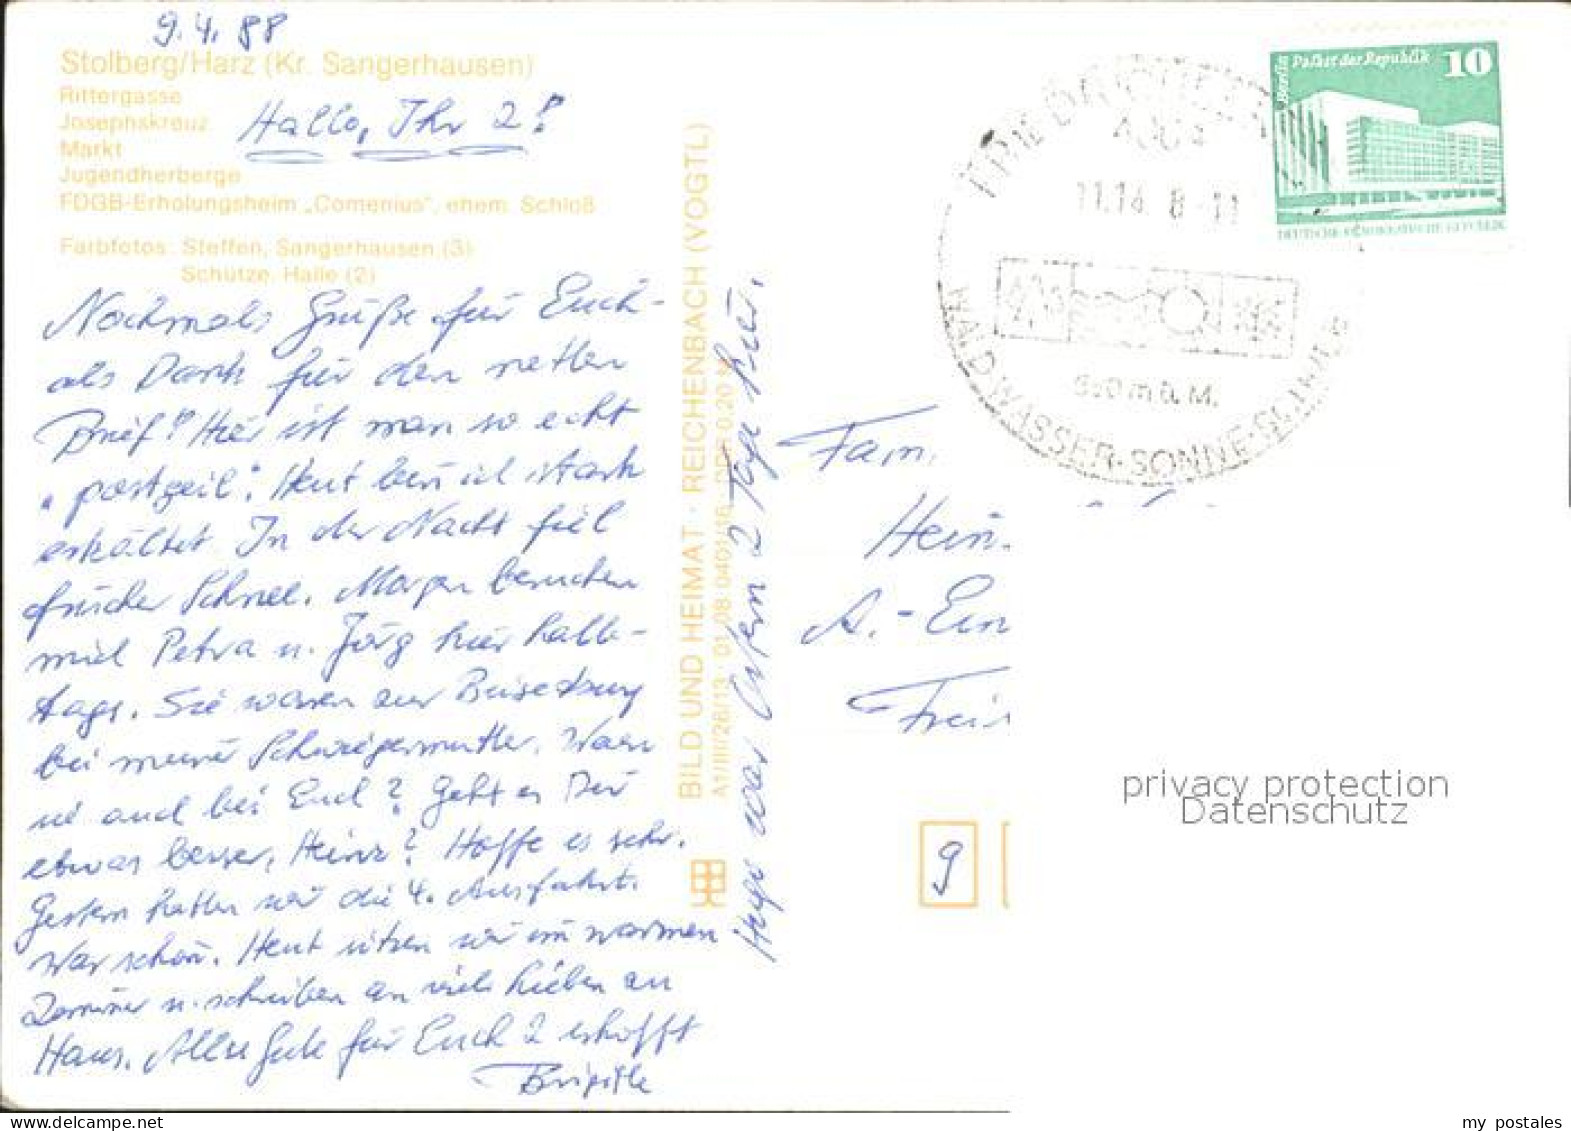 9.4.88
Stolberg/Harz (Kr. Sangerhausen)
Rittergasse
Josephskreuz
Markt
Jugendherberge
FDGB-Erholungsheim „Comenius", ehem. Schloß
Farbfotos: Steffen, Sangerhausen (3)
Schütze, Halle (2)
Hallo, Ihr 2!
Nochmals Grüße für Euch-
als Dank für den netten
Brief! Hier ist man so echt
„postgeil". Heut bin ich stark
erkältet. In der Nacht fiel
frischer Schnee. Morgen besuchen
mich Petra u. Jörg hier halb-
tags. Sie waren zur
bei meiner Schwiegermutter. Waren
sie auch bei Euch? Geht es Dir
etwas besser, Heinz? Hoffe es sehr.
Gestern hatten wir die 4. Ausfahrt.
War schön. Heut sitzen wir im warmen
Zimmer u. schreiben an viele Lieben zu
Haus. Alles Gute für Euch 2 erhofft
Brigitte
Hugo war Ostern 2 Tage hier.
BILD UND HEIMAT · REICHENBACH (VOGTL)
A1/III/26/13 · 01 08 0401/16 · DDR 0,20 M
Berlin Palast der Republik 10
DEUTSCHE DEMOKRATISCHE REPUBLIK
WALD·WASSER·SONNE
m ü. M.
Fam.
Hein
A.-Ein
Frei
9
privacy protection
Datenschutz
my_postales